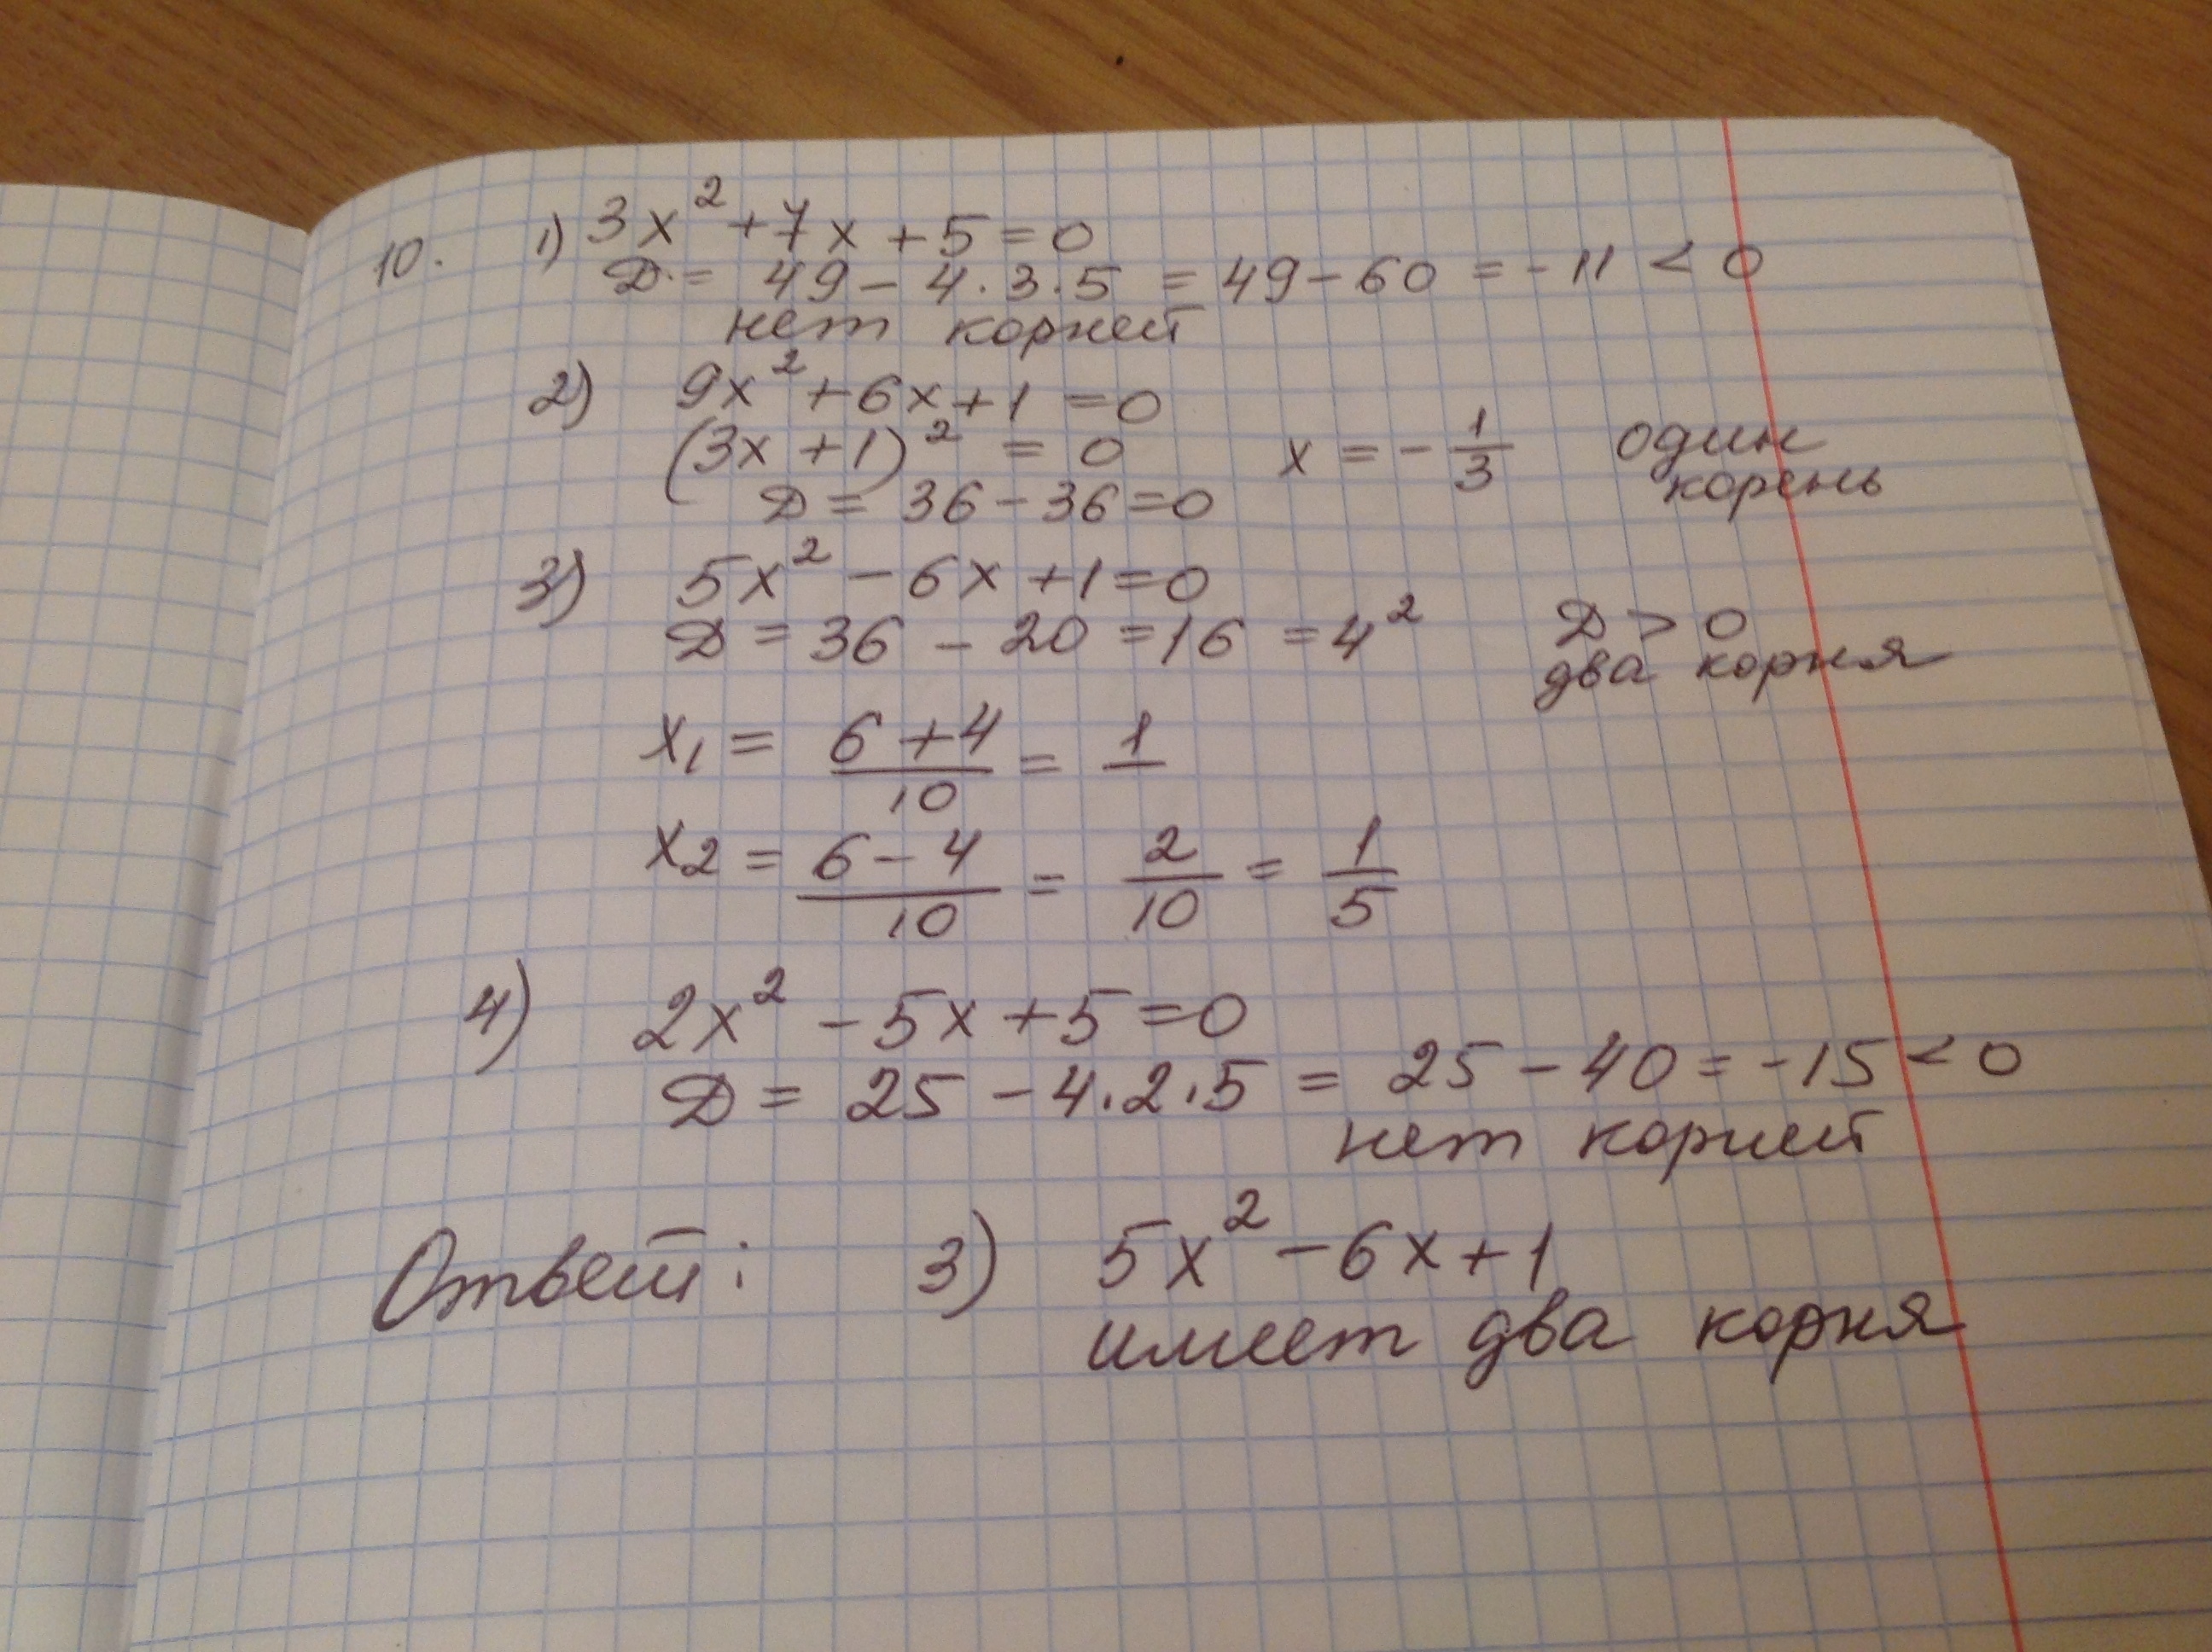 10. 1) 3x² + 7x + 5 = 0
D = 49 - 4·3·5 = 49 - 60 = -11 < 0
нет корней
2) 9x² + 6x + 1 = 0
(3x + 1)² = 0 x = -1/3 один корень
D = 36 - 36 = 0
3) 5x² - 6x + 1 = 0
D = 36 - 20 = 16 = 4² D > 0
два корня
x₁ = (6 + 4)/10 = 1
x₂ = (6 - 4)/10 = 2/10 = 1/5
4) 2x² - 5x + 5 = 0
D = 25 - 4·2·5 = 25 - 40 = -15 < 0
нет корней
Ответ: 3) 5x² - 6x + 1
имеет два корня